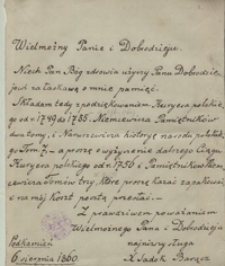 Wielmożny Panie i Dobrodzieju.
Niech Pan Bóg zdrowia użyczy Pana Dobrodzie-
jowi za łaskawą o mnie pamięć.
Składam tedy z podziękowaniem Kuryera polskie-
go od r 1749 do 1755. Niemcewicza Pamiętników
dwa tomy, i Naruszewicza historye narodu polskie-
go Tom 7. - a proszę o wyżyczenie dalszego Ciągu
Kuryera polskiego od r 1756 i Pamiętników Niem-
cewicza Tomów trzy, które proszę kazać zapakować
i na mój koszt pocztą przesłać. -
Z prawdziwem poważaniem
Wielmożnego Pana i Dobrodzieja
najniższy sługa
Podkamień
6 sierpnia 1860. X Sadok Barącz